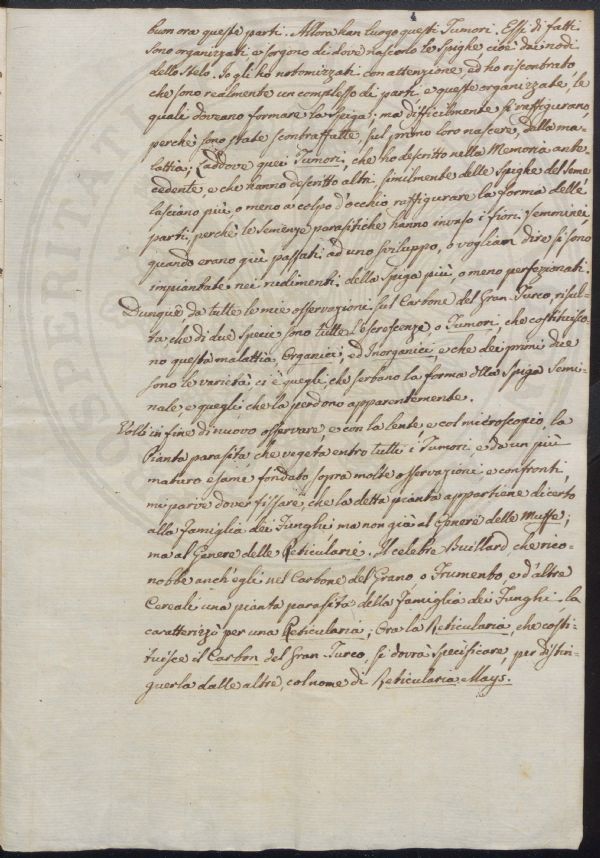 4
buon ora queste parti. Allora han luogo questi Tumori. Essi di fatti
sono organizzati e sorgono di dove nascono le Spighe cioè dai nodi
dello Stelo. Io gli ho notomizzati con attenzione, ed ho riscontrato
che sono realmente un complesso di parti, e queste organizzate, le
quali doveano formare la Spiga; ma difficilmente si raffigurano,
perchè sono state scontraffatte sul primo loro nascere, dalla ma-
lattia; Laddove quei Tumori, che ho descritto nella Memoria ante-
cedente, e che hanno descritto altri similmente delle Spighe del Seme
lasciano più, o meno a colpo d'occhio raffigurare la forma delle
parti, perchè le Semenze parasitiche hanno invaso i fiori feminei
quando erano già passati ad uno sviluppo, o vogliam dire si sono
impiantate nei rudimenti della Spiga più, o meno perfezionati.
Dunque da tutte le mie osservazioni sul Carbone del Gran Turco, risul-
ta, che di due Specie sono tutte l'escrescenze, o Tumori, che costituisco-
no questa malattia, Organici, ed Inorganici, e che dei primi due
sono le varietà, ci è quegli, che serbano la forma della Spiga Semi-
nale, e quegli che la perdono apparentemente.
Volli in fine di nuovo osservare, e con la lente, e col microscopio, la
Pianta parasita che vegeta entro tutti i Tumori, e da un più
maturo esame fondato sopra molte osservazioni, e confronti,
mi parve dover fissare, che la detta pianta appartiene di certo
alla famiglia dei Funghi ma non già al Genere delle Muffe;
ma al Genere delle Reticularie. Il celebre Buillard, che rico-
nobbe anch'egli nel Carbone del Grano, o Frumento, e d'altre
Cereali una pianta parasita della famiglia dei Funghi la
caratterizzò per una Reticularia; Ora la Reticularia, che costi-
tuisce il Carbon del Gran-Turco, si dovrà specificare, per distin-
guerla dalle altre, col nome di Reticularia Mays.